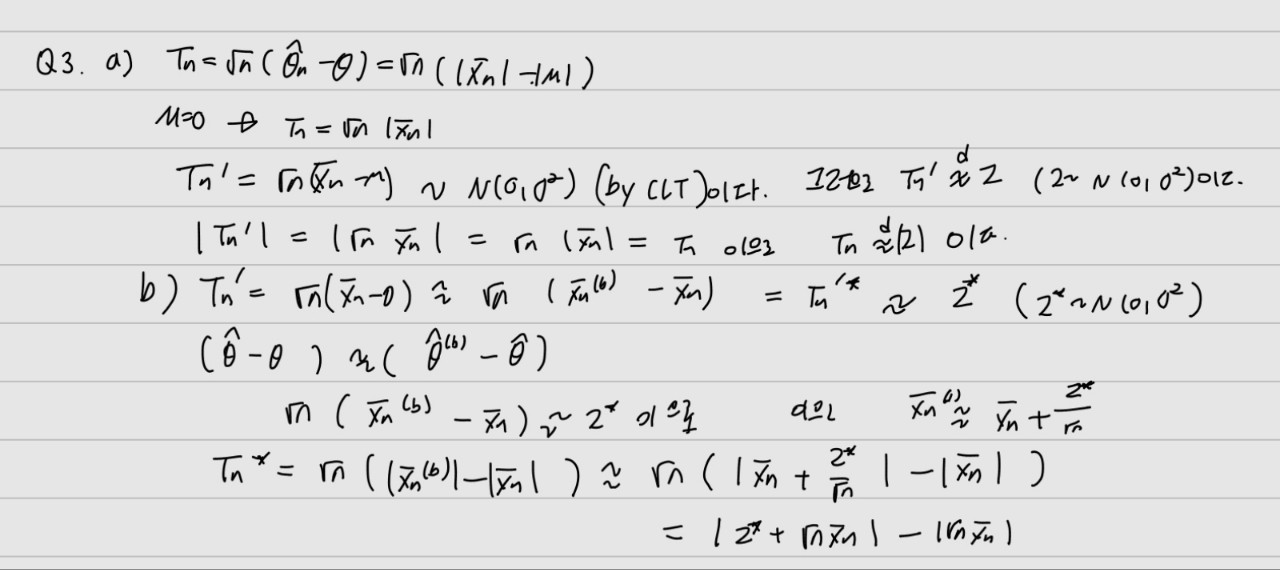 Q3. a) Tn = √n ( θ̂n - θ) = √n ( |X̄n| - |μ| )
μ=0 → Tn = √n |X̄n|
Tn' = √n(X̄n - μ) ~ N(0, σ²) (by CLT)이다. 그러므로 Tn' ≈ᵈ Z (Z ~ N(0, σ²)이고.
|Tn'| = |√n X̄n| = √n |X̄n| = Tn 이므로 Tn ≈ᵈ |Z| 이다.
b) Tn' = √n(X̄n - 0) ≈ √n ( X̄n⁽ᵇ⁾ - X̄n) = Tn'* ≈ Z* (Z* ~ N(0, σ²)
(θ̂ - θ ) ≈ ( θ̂⁽ᵇ⁾ - θ̂ )
√n ( X̄n⁽ᵇ⁾ - X̄n ) ≈ Z* X̄n⁽ᵇ⁾ ≈ X̄n + Z*/√n
Tn* = √n ( |X̄n⁽ᵇ⁾| - |X̄n| ) ≈ √n ( | X̄n + Z*/√n | - |X̄n| )
= | Z* + √n X̄n | - |√n X̄n |